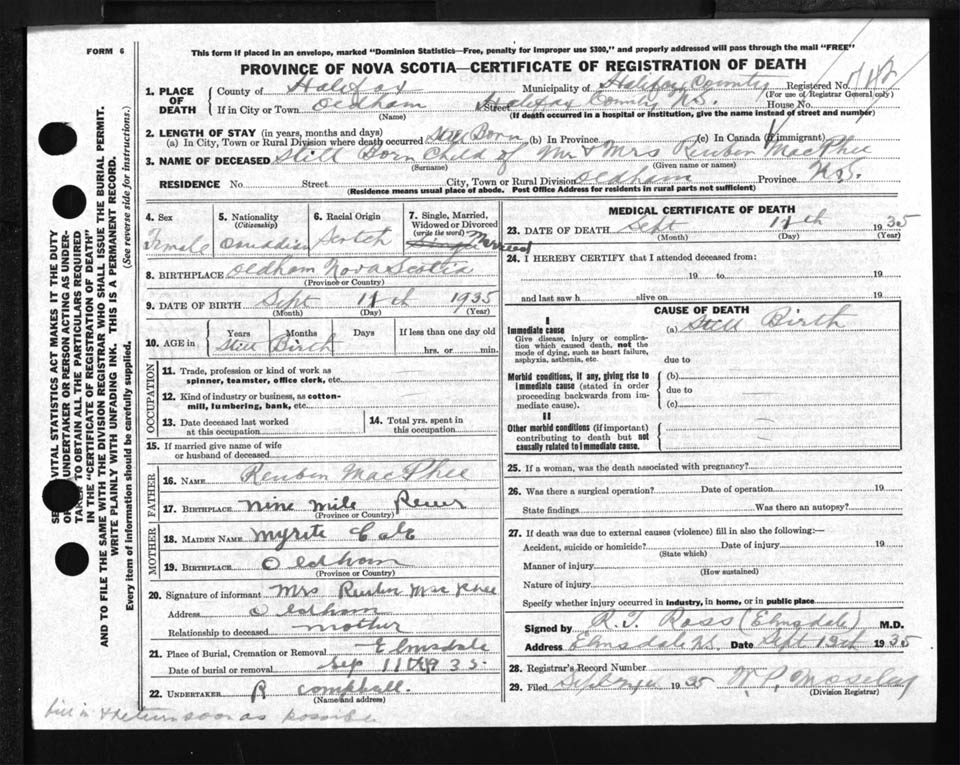 FORM 6
This form if placed in an envelope, marked "Dominion Statistics—Free, penalty for improper use $300," and properly addressed will pass through the mail "FREE"
PROVINCE OF NOVA SCOTIA—CERTIFICATE OF REGISTRATION OF DEATH
1. PLACE OF DEATH County of Halifax Municipality of Halifax County Registered No.
(For use of Registrar General only)
If in City or Town Oldham Street Halifax County N.S. House No.
(Name) (If death occurred in a hospital or institution, give the name instead of street and number)
2. LENGTH OF STAY (in years, months and days)
(a) In City, Town or Rural Division where death occurred Still Born (b) In Province (c) In Canada (if immigrant)
3. NAME OF DECEASED Still Born Child of Mr & Mrs Reuben MacPhee
(Surname) (Given name or names)
RESIDENCE No. Street City, Town or Rural Division Oldham Province N.S.
(Residence means usual place of abode. Post Office Address for residents in rural parts not sufficient)
4. Sex Female
5. Nationality (Citizenship) Canadian
6. Racial Origin Scotch
7. Single, Married, Widowed or Divorced (write the word) Single Married
8. BIRTHPLACE Oldham Nova Scotia
(Province or Country)
9. DATE OF BIRTH Sept 11th 1935
(Month) (Day) (Year)
10. AGE in Years Months Days If less than one day old
Still Birth hrs. or min.
OCCUPATION
11. Trade, profession or kind of work as spinner, teamster, office clerk, etc.
12. Kind of industry or business, as cotton-mill, lumbering, bank, etc.
13. Date deceased last worked at this occupation
14. Total yrs. spent in this occupation
15. If married give name of wife or husband of deceased
FATHER
16. NAME Reuben MacPhee
17. BIRTHPLACE Nine Mile River
(Province or Country)
MOTHER
18. MAIDEN NAME Myrtle Cole
19. BIRTHPLACE Oldham
(Province or Country)
20. Signature of informant Mrs Reuben MacPhee
Address Oldham
Relationship to deceased mother
21. Place of Burial, Cremation or Removal Elmsdale
Date of burial or removal Sep 11th 1935
22. UNDERTAKER R Campbell.
(Name and address)
fill in & return soon as possible
MEDICAL CERTIFICATE OF DEATH
23. DATE OF DEATH Sept 11th 1935
(Month) (Day) (Year)
24. I HEREBY CERTIFY that I attended deceased from:
19 to 19
and last saw h alive on 19
CAUSE OF DEATH
I
Immediate cause
Give disease, injury or complication which caused death, not the mode of dying, such as heart failure, asphyxia, asthenia, etc.
(a) Still Birth
due to
Morbid conditions, if any, giving rise to immediate cause (stated in order proceeding backwards from immediate cause).
(b)
due to
(c)
II
Other morbid conditions (if important) contributing to death but not causally related to immediate cause.
25. If a woman, was the death associated with pregnancy?
26. Was there a surgical operation? Date of operation 19
State findings Was there an autopsy?
27. If death was due to external causes (violence) fill in also the following:—
Accident, suicide or homicide? Date of injury 19
(State which)
Manner of injury
(How sustained)
Nature of injury
Specify whether injury occurred in industry, in home, or in public place
Signed by R.T. Ross (Elmsdale) M.D.
Address Elmsdale N.S. Date Sept 1935
28. Registrar's Record Number
29. Filed 1935 W.P. Moseley
(Division Registrar)
VITAL STATISTICS ACT MAKES IT THE DUTY
UNDERTAKER OR PERSON ACTING AS UNDER-
TO OBTAIN ALL THE PARTICULARS REQUIRED
IN THE "CERTIFICATE OF REGISTRATION OF DEATH"
AND TO FILE THE SAME WITH THE DIVISION REGISTRAR WHO SHALL ISSUE THE BURIAL PERMIT.
WRITE PLAINLY WITH UNFADING INK. THIS IS A PERMANENT RECORD.
Every item of information should be carefully supplied. (See reverse side for instructions.)